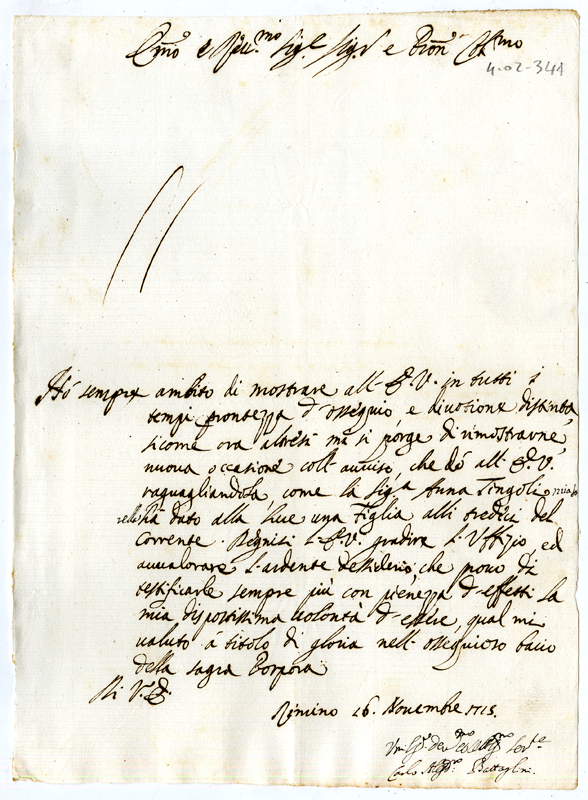 Em̃o e Reu.mo Sig.r Sig.r e Pron' Col.mo
4-02-341
Hò sempre ambito di mostrare all' E.V. in tutti i
tempi prontezza d'ossequio, e diuozione distinta,
sicome ora altresì mi si porge di rimostrarne
nuoua occasione coll' auuiso, che dò all' E.V.
raguagliandola, come la Sig.ra Anna Tingoli mia so
rella hà dato alla luce una Figlia alli tredici del
Corrente. Degnisi l'E.V. gradire l'Uffizio, ed
auualorare l'ardente desiderio, che prouo di
testificarle sempre più con pienezza d'effetti la
mia dispostissima uolontà d'essere, qual mi
ualuto à titolo di gloria nell' ossequioso bacio
della sagra Porpora
Di V.E.
Rimino 26. Nouembre 1715.
Um.o De.mo Obb.mo Ser.re
Carlo Battaglini